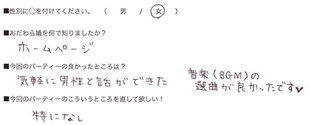 ■性別に○を付けてください。 ( 男 / 女 )
■おだわら婚を何で知りましたか?
ホームページ
■今回のパーティーの良かったところは?
気軽に男性と話ができた 音楽(BGM)の
選曲が良かったです
■今回のパーティーのこういうところを直して欲しい!
特になし